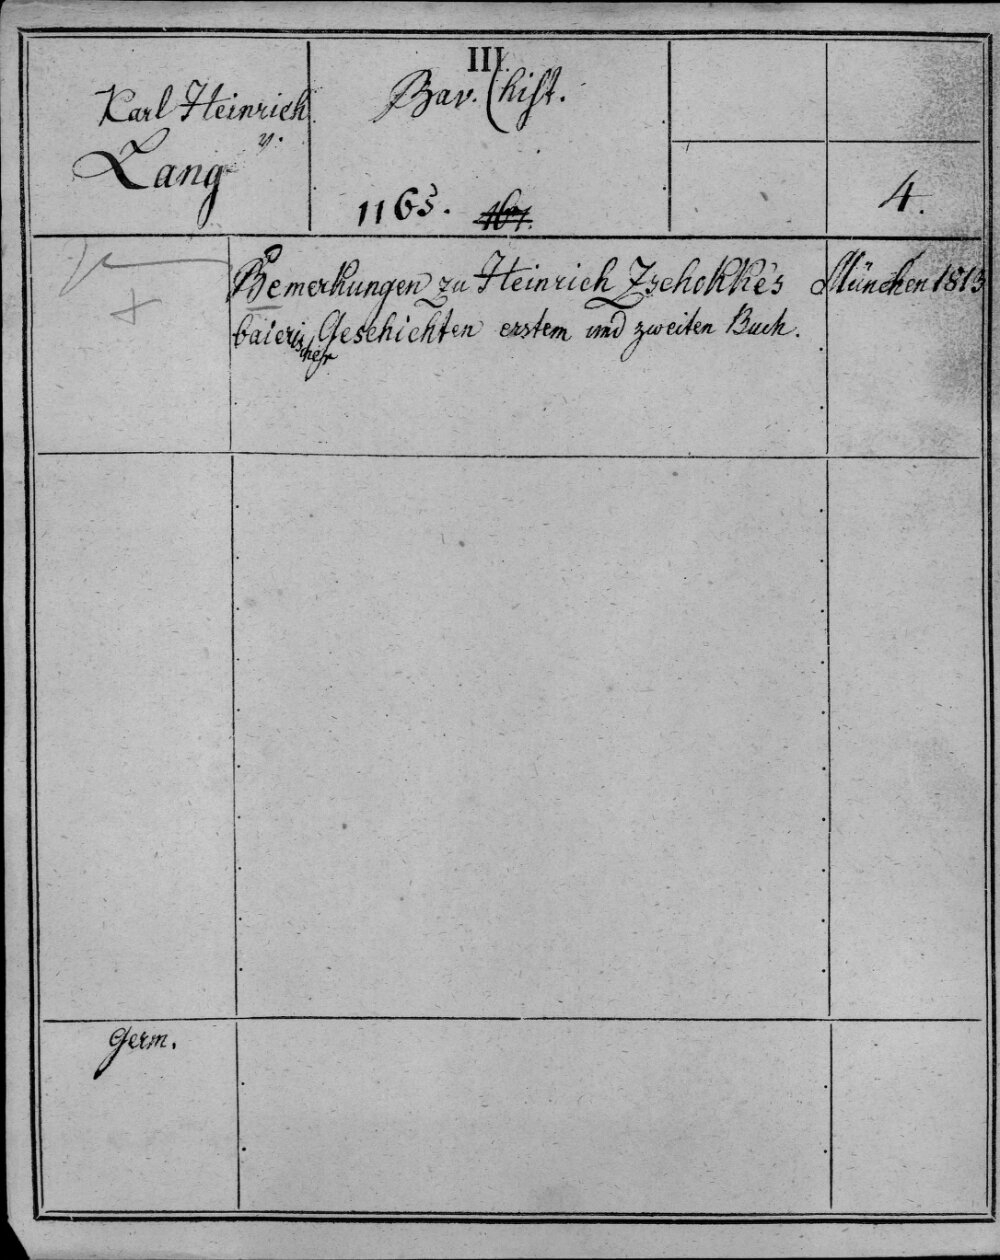 III
Karl Heinrich
v.
Lang
Bav. (hist.
1165.
4.
Bemerkungen zu Heinrich Zschokke's
baierischer Geschichten erstem und zweiten Buch.
München 1813
Germ.